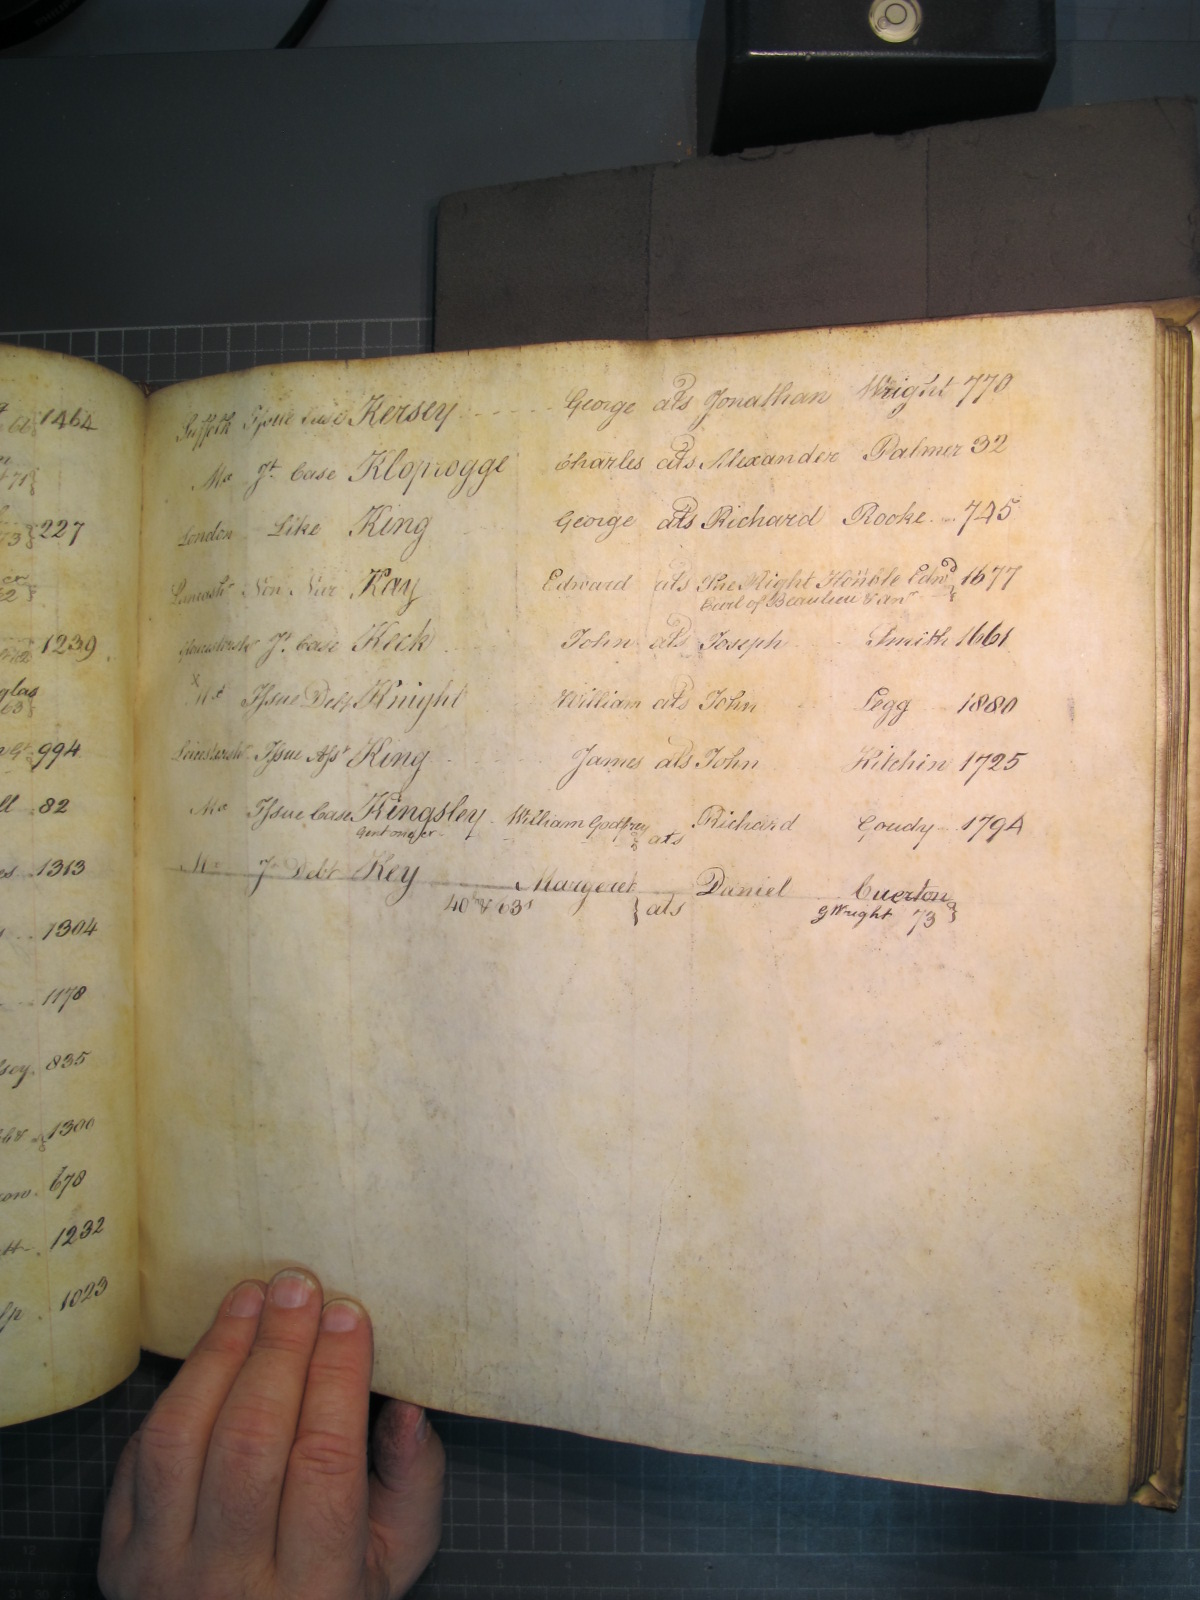 1464
227
1239
glas
63}
994
82
1313
1304
1178
835
1300
678
1232
1023
Suffolk Issue Case Kersey George ats Jonathan Wright 770
Mx Jt Case Kloprogge Charles ats Alexander Palmer 32
London Like King George ats Richard Rooke 745
Lancashr Non Nire Kay Edward ats The Right Honble Edwd 1677
Earl of Beaulieu & anr
Gloucestershr Jt Case Keck John ats Joseph Smith 1661
x
Mx Issue Debt Knight William ats John Legg 1880
Leicestershr Issue Asst King James ats John Kitchin 1725
Mx Issue Case Kingsley William Godfrey Richard Goudy 1794
Gent one &c } ats
Mx Jt Debt Key Margeret Daniel Cuerton
40 & 63s } ats G Wright 73 }